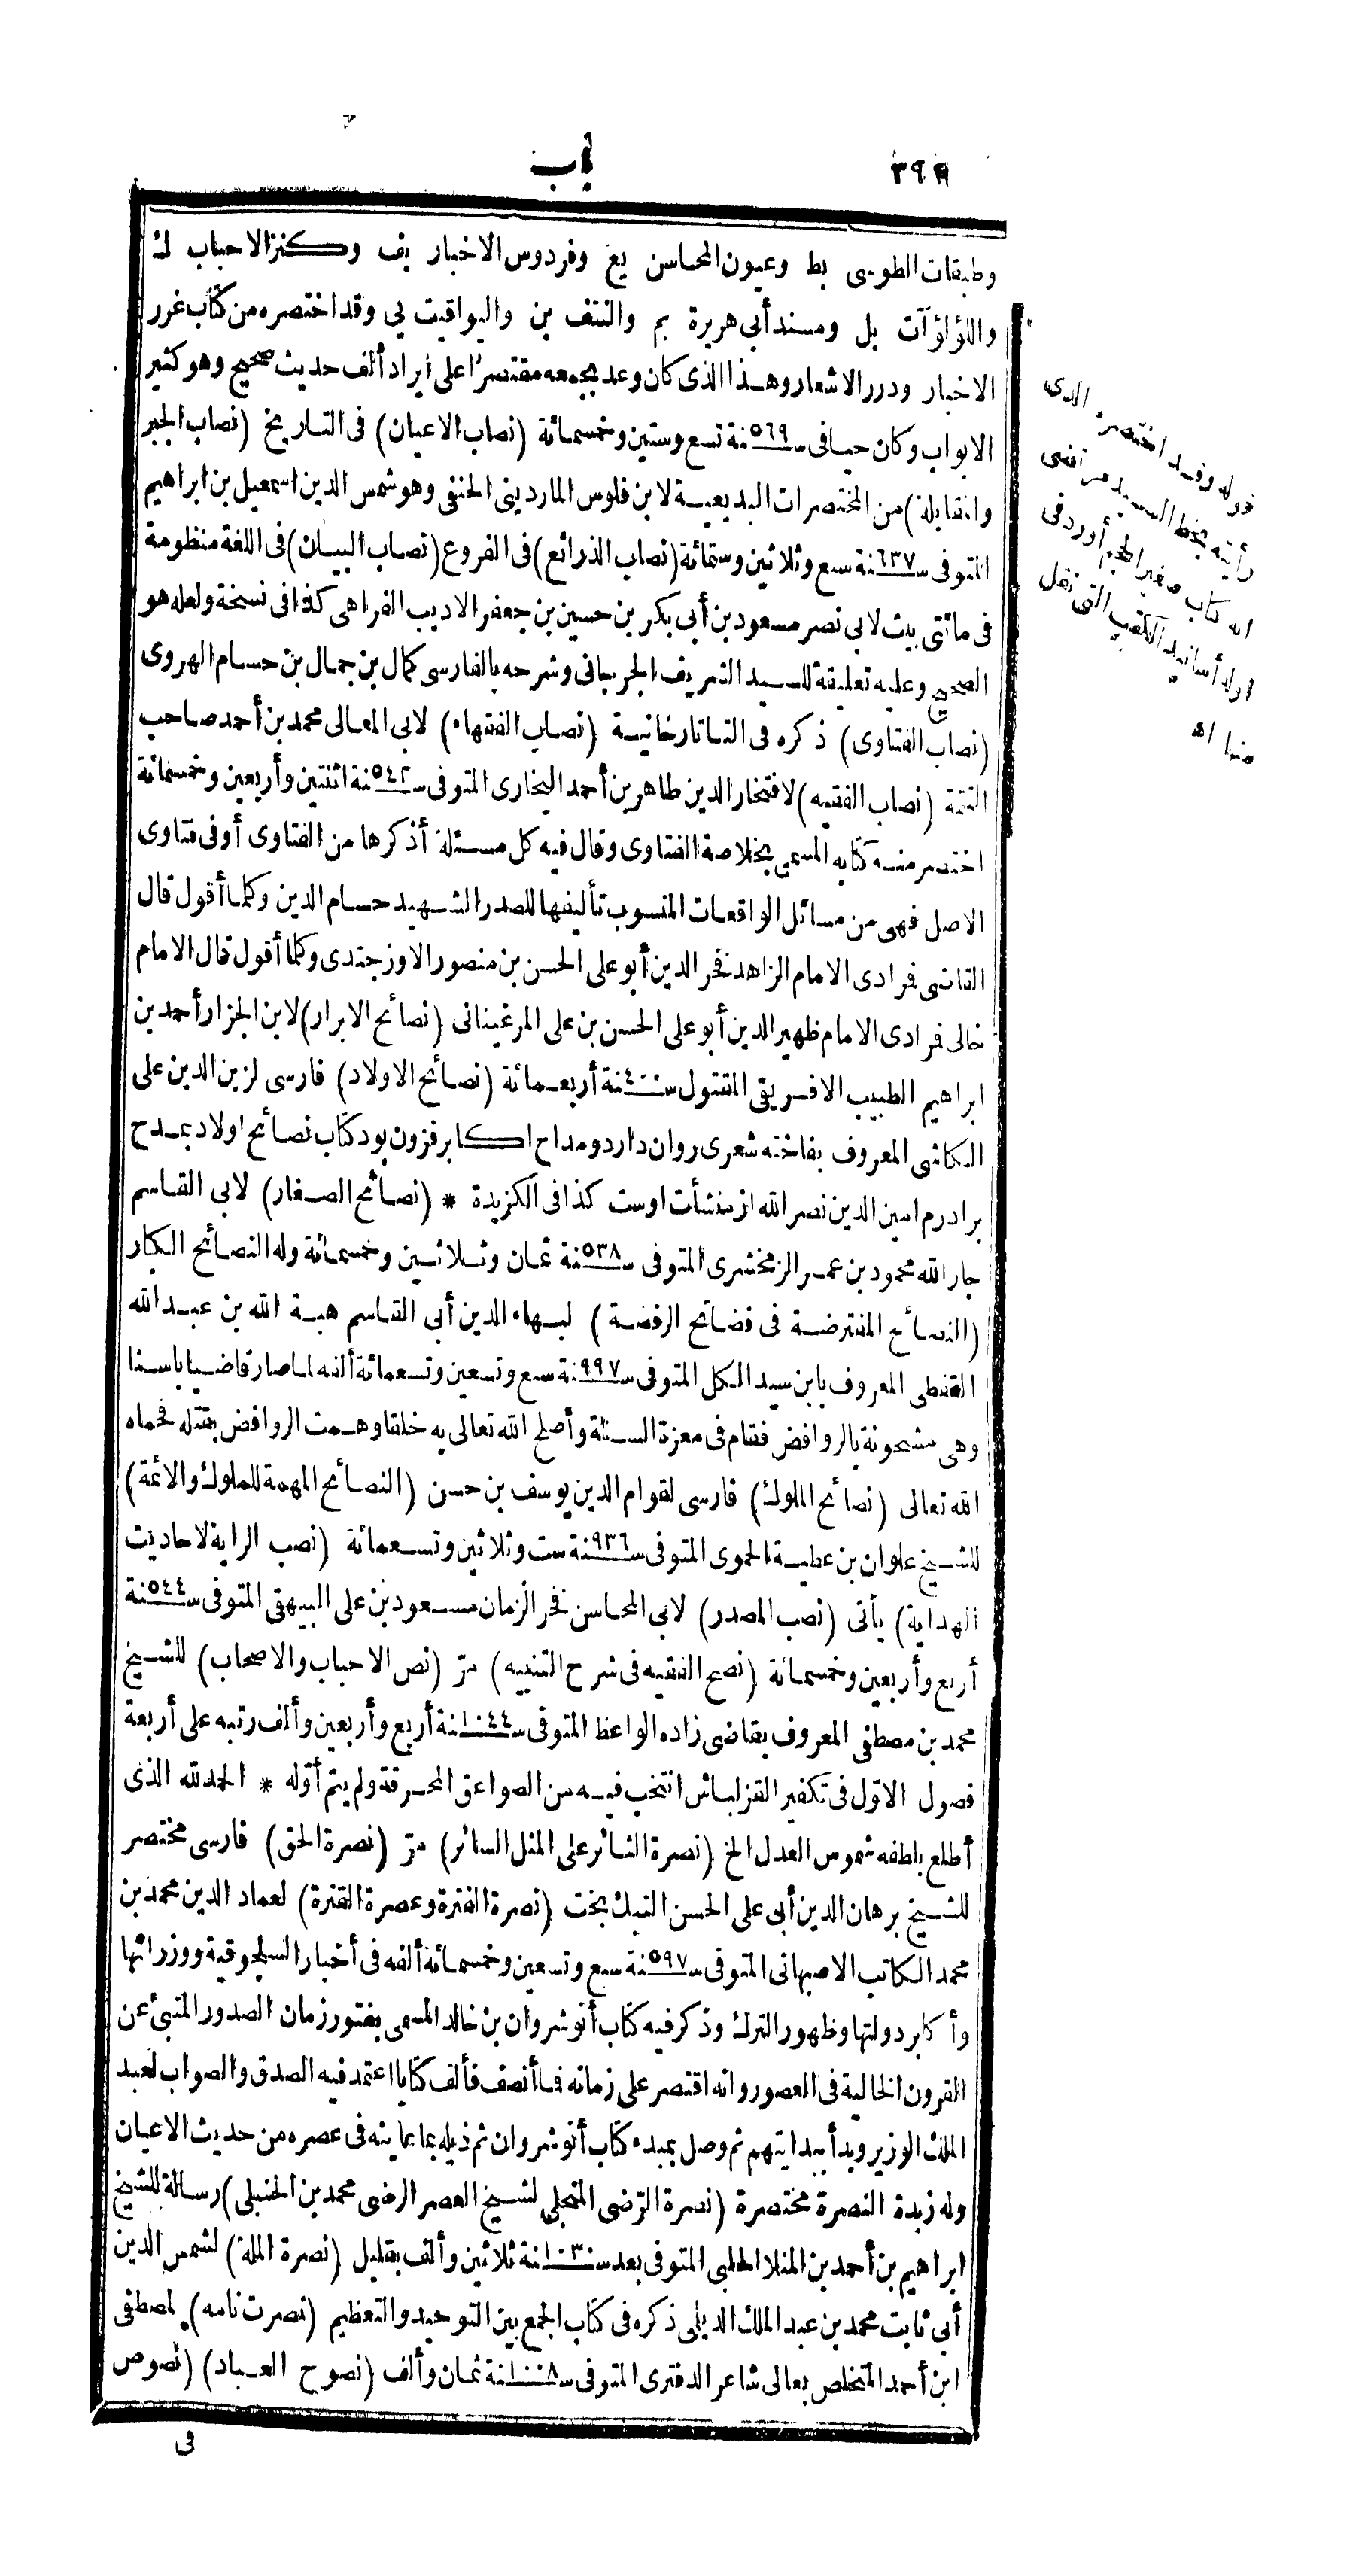 باب
وطبقات الطوسى بط وعيون المحاسن يع وفردوس الاخبار يف وكنز الاحباب لك
واللؤلؤآت بل ومسند أبى هريرة بم والنتف بن واليواقيت بى وقد اختصره من كتاب غرر
الاخبار ودرر الاشعار وهذا الذى كان وعد بجمعه مقتصرا على ايراد ألف حديث صحيح وهو كثير
الابواب وكان حيا فى سنة ٥٦٩ تسع وستين وخمسمائة (نصاب الاعيان) فى التاريخ (نصاب الجبر
والمقابلة) من المختصرات البديعية لابن فلوس الماردينى الحنفى وهو شمس الدين اسمعيل بن ابراهيم
المتوفى سنة ٦٣٧ سبع وثلاثين وستمائة (نصاب الذرائع) فى الفروع (نصاب البيان) فى اللغة منظومة
فى مائتى بيت لابى نصر مسعود بن أبى بكر بن حسين بن جعفر الاديب الفراهى كذا فى نسخة ولعله هو
الصحيح وعليه تعليقة للسيد الشريف الجرجانى وشرحه بالفارسى كمال بن جمال بن حسام الهروى
(نصاب الفتاوى) ذكره فى التاتارخانية (نصاب الفقهاء) لابى المعالى محمد بن أحمد صاحب
التتمة (نصاب الفقيه) لافتخار الدين طاهر بن أحمد البخارى المتوفى سنة ٥٤٢ اثنتين وأربعين وخمسمائة
اختصر منه كتابه المسمى بخلاصة الفتاوى وقال فيه كل مسئلة أذكرها من الفتاوى أو فى فتاوى
الاصل فهى من مسائل الواقعات المنسوب تأليفها للصدر الشهيد حسام الدين وكلما أقول قال
القاضى فمرادى الامام الزاهد فخر الدين أبو على الحسن بن منصور الاوزجندى وكلما أقول قال الامام
خالى فمرادى الامام ظهير الدين أبو على الحسن بن على المرغينانى (نصائح الابرار) لابن الجزار أحمد بن
ابراهيم الطبيب الافريقى المقتول سنة ٤٠٠ أربعمائة (نصائح الاولاد) فارسى لزين الدين على
الكاشى المعروف بفاخته شعرى روان دارد ومداح اكابر فزون بود كتاب نصائح اولاد بمدح
برادرم امين الدين نصر الله از منشأت اوست كذا فى الكزيدة * (نصائح الصغار) لابى القاسم
جار الله محمود بن عمر الزمخشرى المتوفى سنة ٥٣٨ ثمان وثلاثين وخمسمائة وله النصائح الكبار
(النصائح المفترضة فى فضائح الرفضة) لبهاء الدين أبى القاسم هبة الله بن عبد الله
القفطى المعروف بابن سيد الكل المتوفى سنة ٩٩٧ سبع وتسعين وتسعمائة ألفه لما صار قاضيا باسنا
وهى مشحونة بالروافض فقام فى معزة السنة وأصلح الله تعالى به خلقا وهمت الروافض بقتله فحماه
الله تعالى (نصائح الملوك) فارسى لقوام الدين يوسف بن حسن (النصائح المهمة للملوك والائمة)
للشيخ علوان بن عطية الحموى المتوفى سنة ٩٣٦ ست وثلاثين وتسعمائة (نصب الراية لاحاديث
الهداية) يأتى (نصب المصدر) لابى المحاسن فخر الزمان مسعود بن على البيهقى المتوفى سنة ٥٤٤
أربع وأربعين وخمسمائة (نصح الفقيه فى شرح التنبيه) مرّ (نص الاحباب والاصحاب) للشيخ
محمد بن مصطفى المعروف بقاضى زاده الواعظ المتوفى سنة ١٠٤٤ أربع وأربعين وألف رتبه على أربعة
فصول الاوّل فى تكفير القزلباش انتخب فيه من الصواعق المحرقة ولم يتم أوّله * الحمد لله الذى
أطلع بلطفه شموس العدل الخ (نصرة الثائر على المثل السائر) مرّ (نصرة الحق) فارسى مختصر
للشيخ برهان الدين أبى على الحسن النيك بخت (نصرة الفترة وعصرة القترة) لعماد الدين محمد بن
محمد الكاتب الاصبهانى المتوفى سنة ٥٩٧ سبع وتسعين وخمسمائة ألفه فى أخبار السلجوقية ووزرائها
وأكابر دولتها وظهور الترك وذكر فيه كتاب أنوشروان بن خالد المسمى بفتور زمان الصدور المنبئ عن
القرون الخالية فى العصور وانه اقتصر على زمانه فما أنصف فألف كتابا اعتمد فيه الصدق والصواب لعبد
الملك الوزير وبدأ ببدايتهم ثم وصل بمبدء كتاب أنوشروان ثم ذيله بما عاينه فى عصره من حديث الاعيان
وله زبدة النصرة مختصرة (نصرة الرّضى المتجلى لشيخ العصر الرضى محمد بن الحنبلى) رسالة للشيخ
ابراهيم بن أحمد بن المنلا الحلبى المتوفى بعد سنة ١٠٣٠ ثلاثين وألف بقليل (نصرة الملة) لشمس الدين
أبى ثابت محمد بن عبد الملك الديلمى ذكره فى كتاب الجمع بين التوحيد والتعظيم (نصرت نامه) لمصطفى
ابن أحمد المتخلص بعالى شاعر الدفترى المتوفى سنة ١٠٠٨ ثمان وألف (نصوح العباد) (نصوص
فى
قوله وقد اختصره الذى
رأيته بخط السيد مرتضى
انه كتاب صغير الحجم أورد فى
اوله أسانيد الكتب التى نقل
منها اه